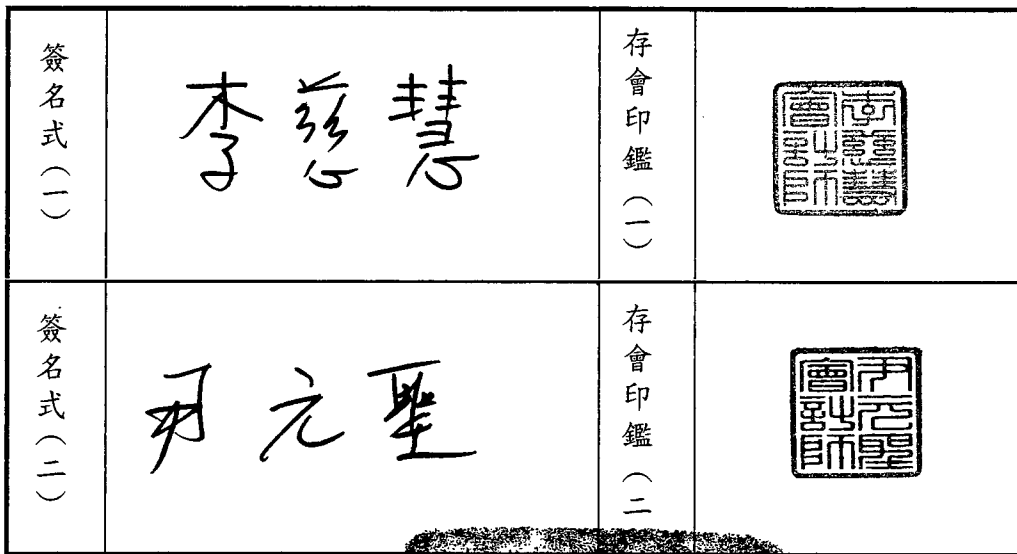 簽名式(一)
李慈慧
存會印鑑(一)
李慈慧會計師
簽名式(二)
尹元聖
存會印鑑(二
尹元聖會計師